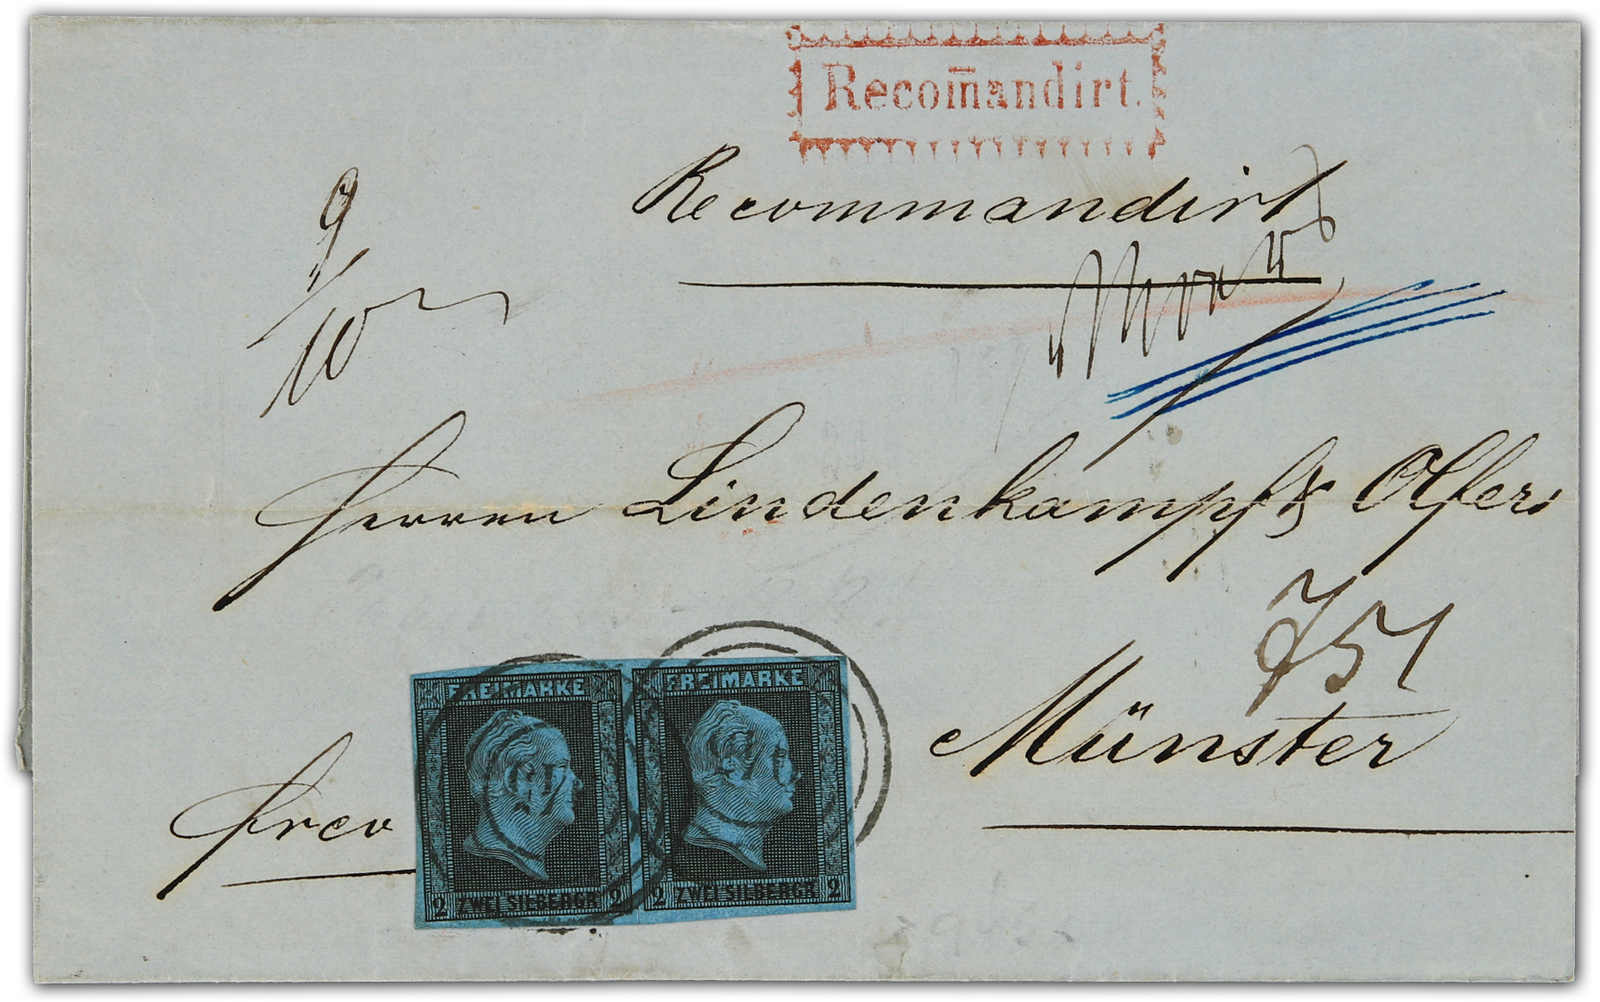 Recom̄andirt.
Recommandirt
9/10
Herren Lindenkampf & Olfers
751
Münster
FREIMARKE FREIMARKE
frco
2 ZWEI SILBERGR. 2 2 ZWEI SILBERGR. 2